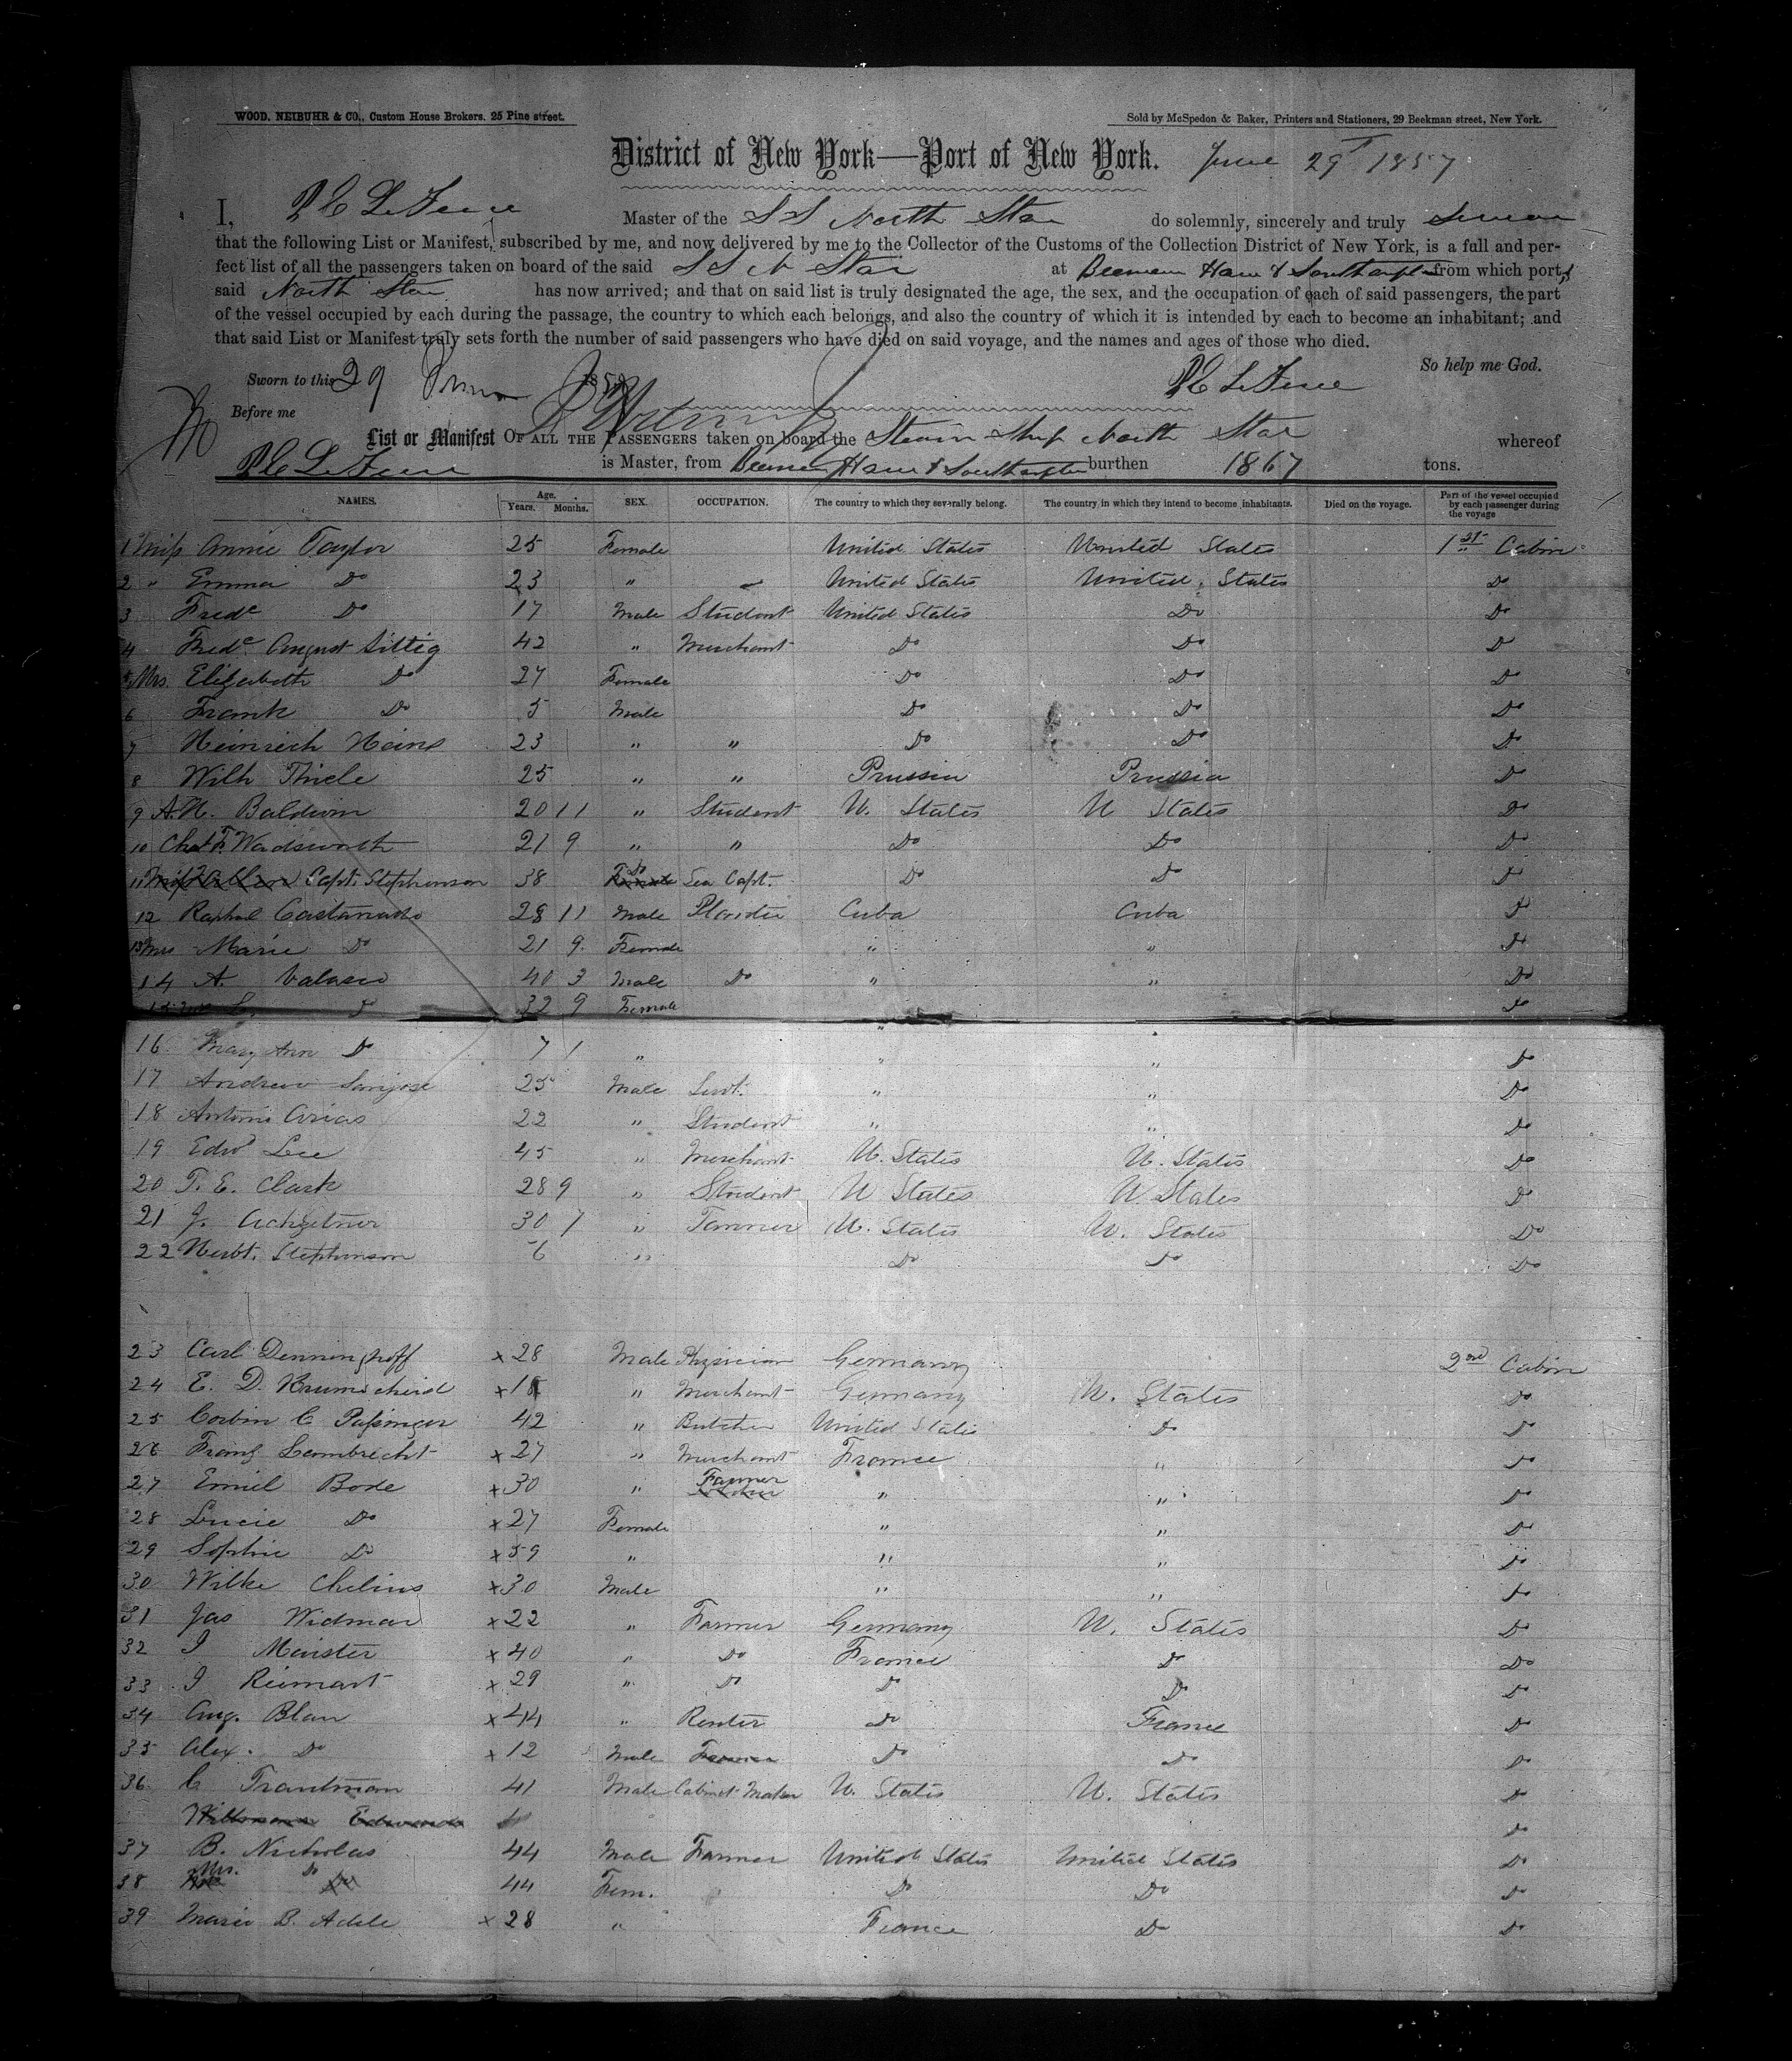 WOOD, NEIBUHR & CO., Custom House Brokers. 25 Pine street.
Sold by McSpedon & Baker, Printers and Stationers, 29 Beekman street, New York.
District of New York—Port of New York. June 29 1857
I, P E Le Fevre Master of the S S North Star do solemnly, sincerely and truly swear
that the following List or Manifest, subscribed by me, and now delivered by me to the Collector of the Customs of the Collection District of New York, is a full and per-
fect list of all the passengers taken on board of the said S S N Star at Bremen Havre & Southampton from which port
said North Star has now arrived; and that on said list is truly designated the age, the sex, and the occupation of each of said passengers, the part
of the vessel occupied by each during the passage, the country to which each belongs, and also the country of which it is intended by each to become an inhabitant; and
that said List or Manifest truly sets forth the number of said passengers who have died on said voyage, and the names and ages of those who died.
So help me God.
Sworn to this 29 June 185 P E Le Fevre
Before me
List or Manifest OF ALL THE PASSENGERS taken on board the Steam Ship North Star whereof
P E Le Fevre is Master, from Bremen Havre & Southampton burthen 1867 tons.
NAMES. Age. Years. Months. SEX. OCCUPATION. The country to which they severally belong. The country in which they intend to become inhabitants. Died on the voyage. Part of the vessel occupied by each passenger during the voyage
1 Miss Annie Taylor 25 Female United States United States 1st Cabin
2 " Emma Do 23 " United States United States Do
3 Fredc Do 17 Male Student United States Do Do
4 Fredc August Sittig 42 " Merchant Do Do Do
5 Mrs. Elizabeth Do 27 Female Do Do Do
6 Frank Do 5 Male Do Do Do
7 Heinrich Heins 23 " " Do Do Do
8 Wilh Thiele 25 " " Prussia Prussia Do
9 A.H. Baldwin 20 11 " Student U. States U States Do
10 Chas F. Wadsworth 21 9 " " Do Do Do
11 Capt. Stephenson 38 Do Sea Capt. Do Do Do
12 Raphael Castanado 28 11 Male Planter Cuba Cuba Do
13 Mrs Marie Do 21 9 Female " " Do
14 A. Valasco 40 3 Male Do " " Do
15 Mrs L. Do 32 9 Female Do
16 Mary Ann Do 7 1 " " " Do
17 Andrew Sanjose 25 Male " " Do
18 Antonio Arias 22 " Student " " Do
19 Edwd Lee 45 " Merchant U. States U. States Do
20 T. E. Clark 28 9 " Student U States U States Do
21 J. 30 7 " Tanner U. States U. States Do
22 Herbt. Stephenson 6 " Do Do Do
23 Carl Denninghoff x 28 Male Physician Germany 2nd Cabin
24 E. D. Krumscheid x 18 " Merchant Germany U. States Do
25 Corbin C Passinger 42 " Butcher United States Do Do
26 Franz Lambrecht x 27 " Merchant France " Do
27 Emiel Bode x 30 " Farmer " " Do
28 Lucie Do x 27 Female " " Do
29 Sophie Do x 59 " " " Do
30 Wilke Chelius x 30 Male " " Do
31 Jas Widmar x 22 " Farmer Germany U. States Do
32 J Meister x 40 " Do France Do Do
33 J Reimart x 29 " Do Do Do Do
34 Aug. Blau x 44 " Renter Do France Do
35 Alex. Do x 12 Male Farmer Do Do Do
36 C Trautman 41 Male Cabinet Maker U. States U. States Do
Do
37 B. Nicholas 44 Male Farmer United States United States Do
38 Mrs. Do 44 Fem. Do Do Do
39 Marie B. Adele x 28 " France Do Do